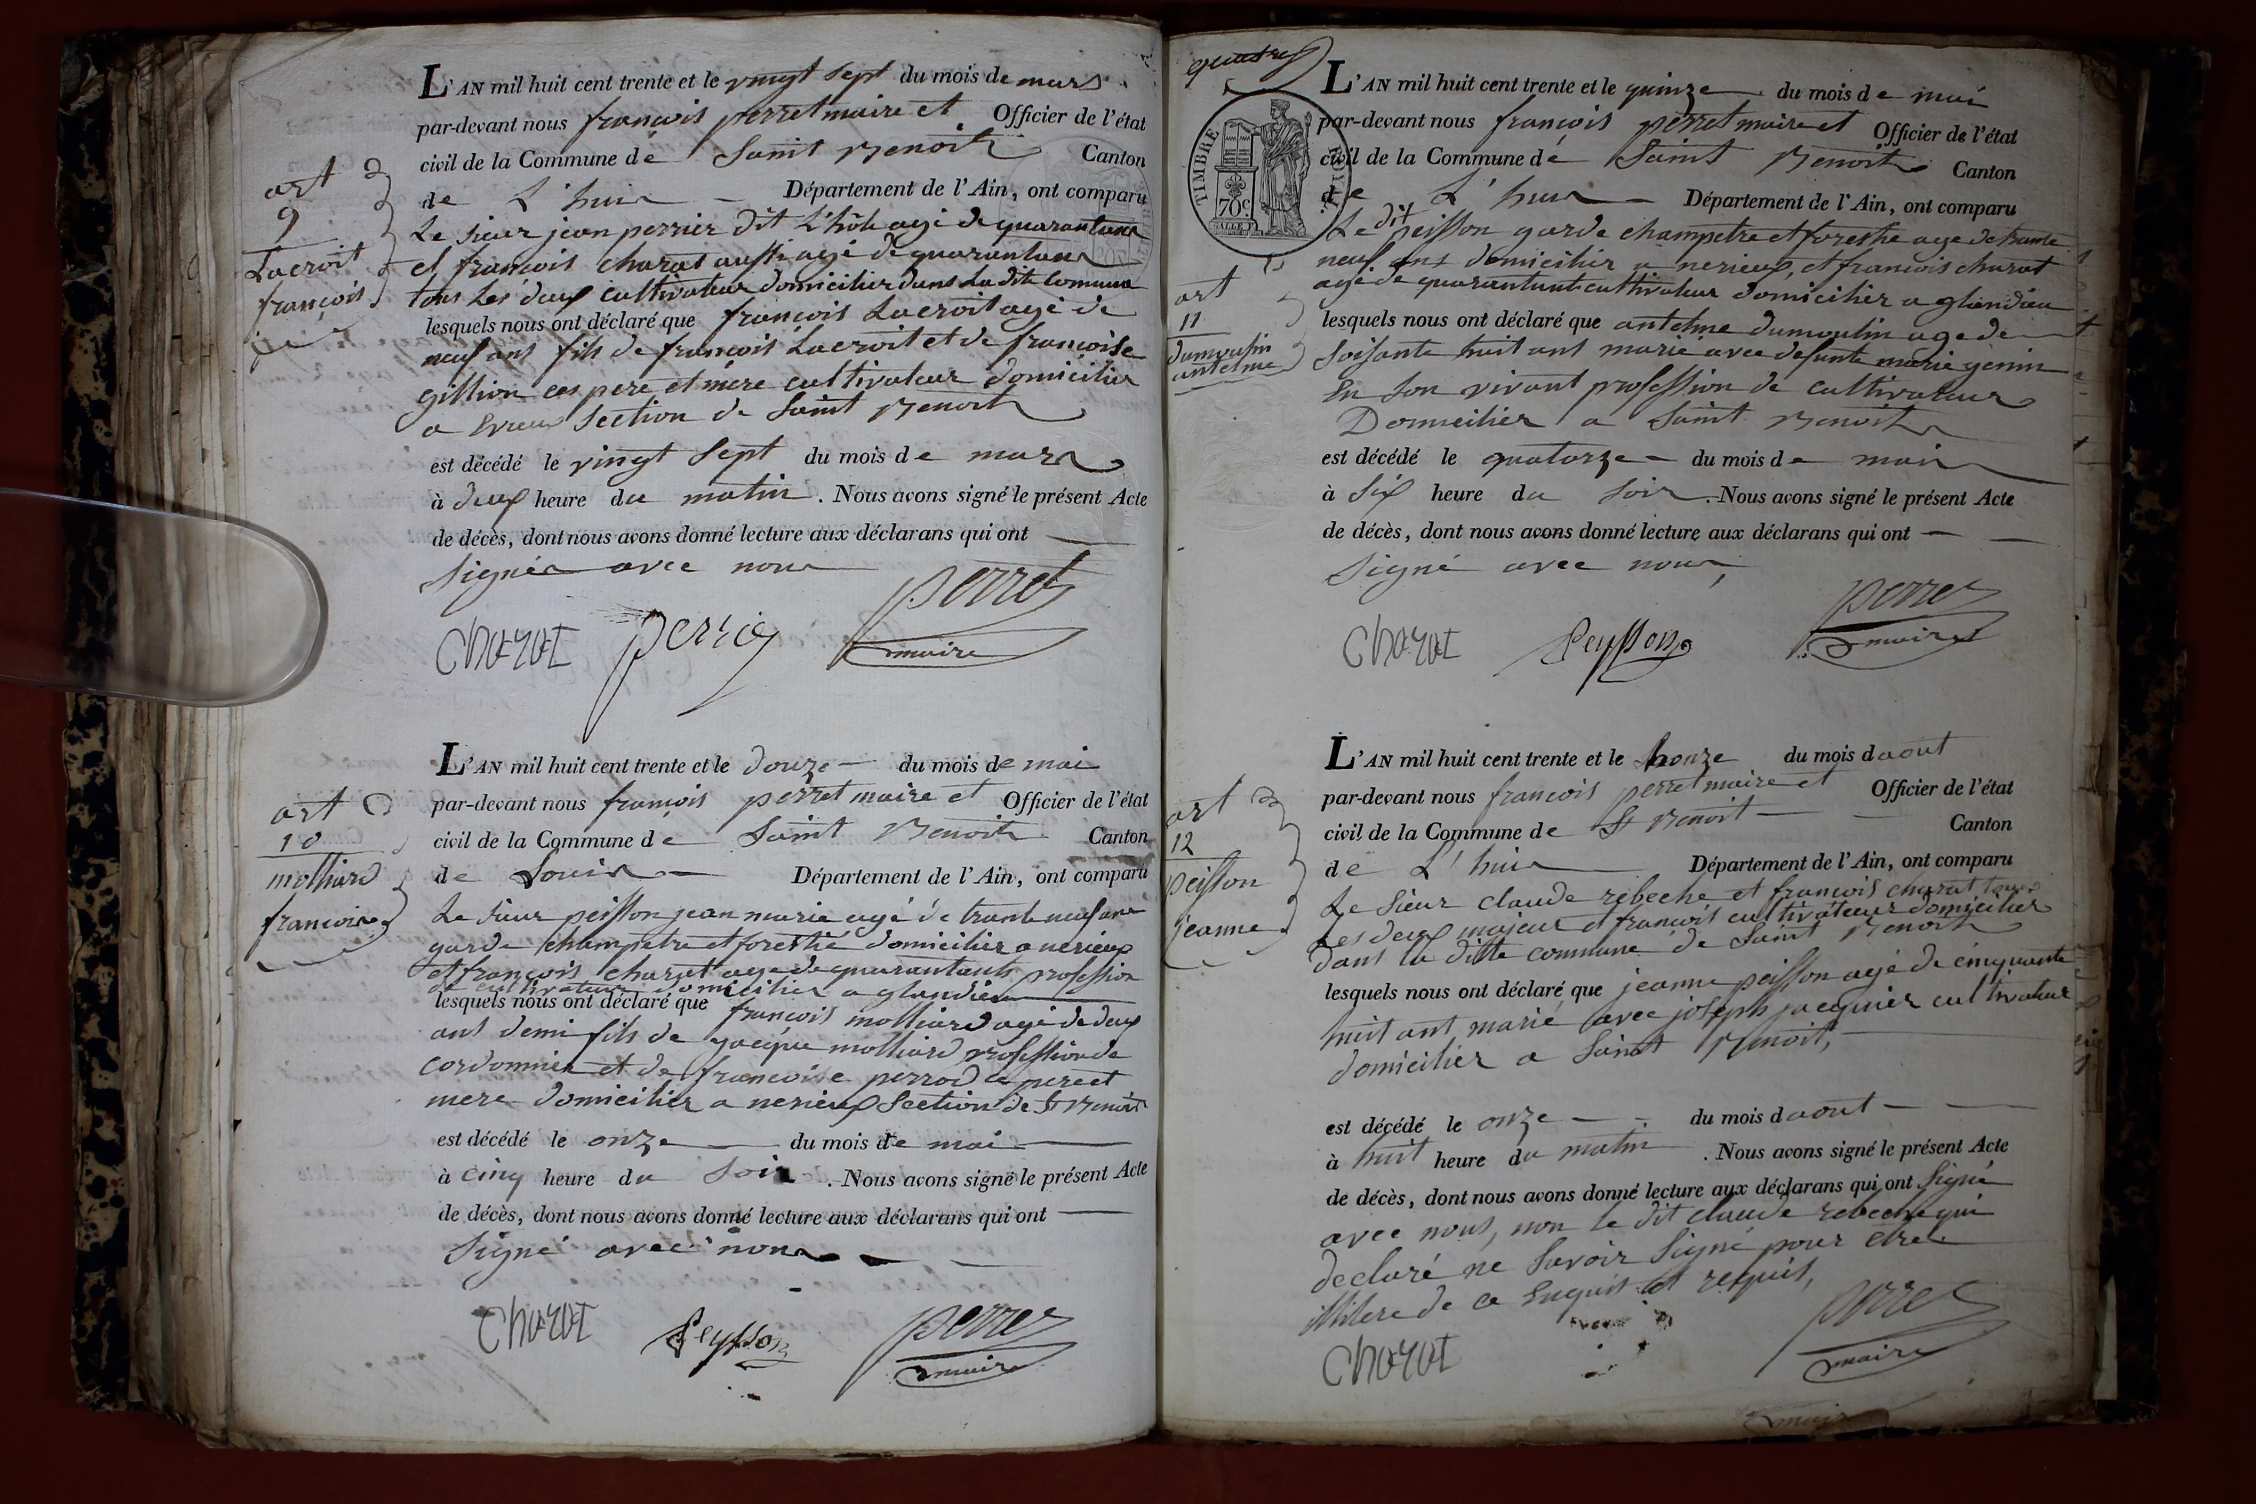 L'AN mil huit cent trente et le vingt sept du mois de mars
par-devant nous françois perret maire et Officier de l'état
civil de la Commune de Saint Benoit Canton
de L'huis Département de l'Ain, ont comparu
Le sieur jean perrier dit L'hôte agé de quarante ans
et françois charat aussi agé de quarante ans
tous Les deux cultivateur domicilier dans La dite Commune
lesquels nous ont déclaré que françois Lacroit agé de
neuf ans fils de françois Lacroit et de françoise
gillion ces pere et mere cultivateur domicilier
a Evieu Section de Saint Benoit
est décédé le vingt Sept du mois de mars
à deux heure du matin. Nous avons signé le présent Acte
de décès, dont nous avons donné lecture aux déclarans qui ont
Signée avec nous
art
9
Lacroit
françois
Charat perrier perret
maire
L'AN mil huit cent trente et le douze du mois de mai
par-devant nous françois perret maire et Officier de l'état
civil de la Commune de Saint Benoit Canton
de Louis Département de l'Ain, ont comparu
Le sieur peisson jean marie agé de trante neuf ans
garde champetre et forestié domicilier a nerieux
et françois charat age de quarante ans profession
de cultivateur domicilier a glandieu
lesquels nous ont déclaré que françois molliard agé de deux
ans demi fils de jacque molliard profession de
cordonnier et de francoise perrod ce pere et
mere domicilier a nerieux Section de St Benoit
est décédé le onze du mois de mai
à cinq heure du Soir. Nous avons signé le présent Acte
de décès, dont nous avons donné lecture aux déclarans qui ont
Signé avec nous
art
10
molliard
francoise
Charat Peysson perret
maire
quatre
TIMBRE ROYAL
70 c.
L'AN mil huit cent trente et le quinze du mois de mai
par-devant nous françois perret maire et Officier de l'état
civil de la Commune de Saint Benoit Canton
de L'huis Département de l'Ain, ont comparu
Le dit peisson garde champetre et forestie age de trante
neuf ans domicilier a nerieux, et francois charat
agé de quarante ans cultivateur domicilier a glandieu
lesquels nous ont déclaré que antelme dumoulin age de
Soisante huit ans marié avec defunte marie genin
En Son vivant profession de cultivateur
Domicilier a Saint Benoit
est décédé le quatorze du mois de mai
à Six heure du Soir. Nous avons signé le présent Acte
de décès, dont nous avons donné lecture aux déclarans qui ont
Signé avec nous,
art
11
dumoulin
antelme
Charat Peysson perret
maire
L'AN mil huit cent trente et le honze du mois d aout
par-devant nous françois perret maire et Officier de l'état
civil de la Commune de St Benoit Canton
de L'huis Département de l'Ain, ont comparu
Le Sieur claude rebeche et françois charat tous
Les deux majeur et francois cultivateur domicilier
dans la ditte commune de Saint Benoit
lesquels nous ont déclaré que jeanne peisson agé de cinquante
huit ant marié avec joseph jacquier cultivateur
domicilier a Saint Benoit,
est décédé le onze du mois d aout
à huit heure du matin. Nous avons signé le présent Acte
de décès, dont nous avons donné lecture aux déclarans qui ont Signé
avec nous, non le dit claude rebeche qui
declaré ne Savoir Signé pour etre
illitere de ce Enquis et requis,
art
12
peisson
jeanne
Charat perret
maire
maire